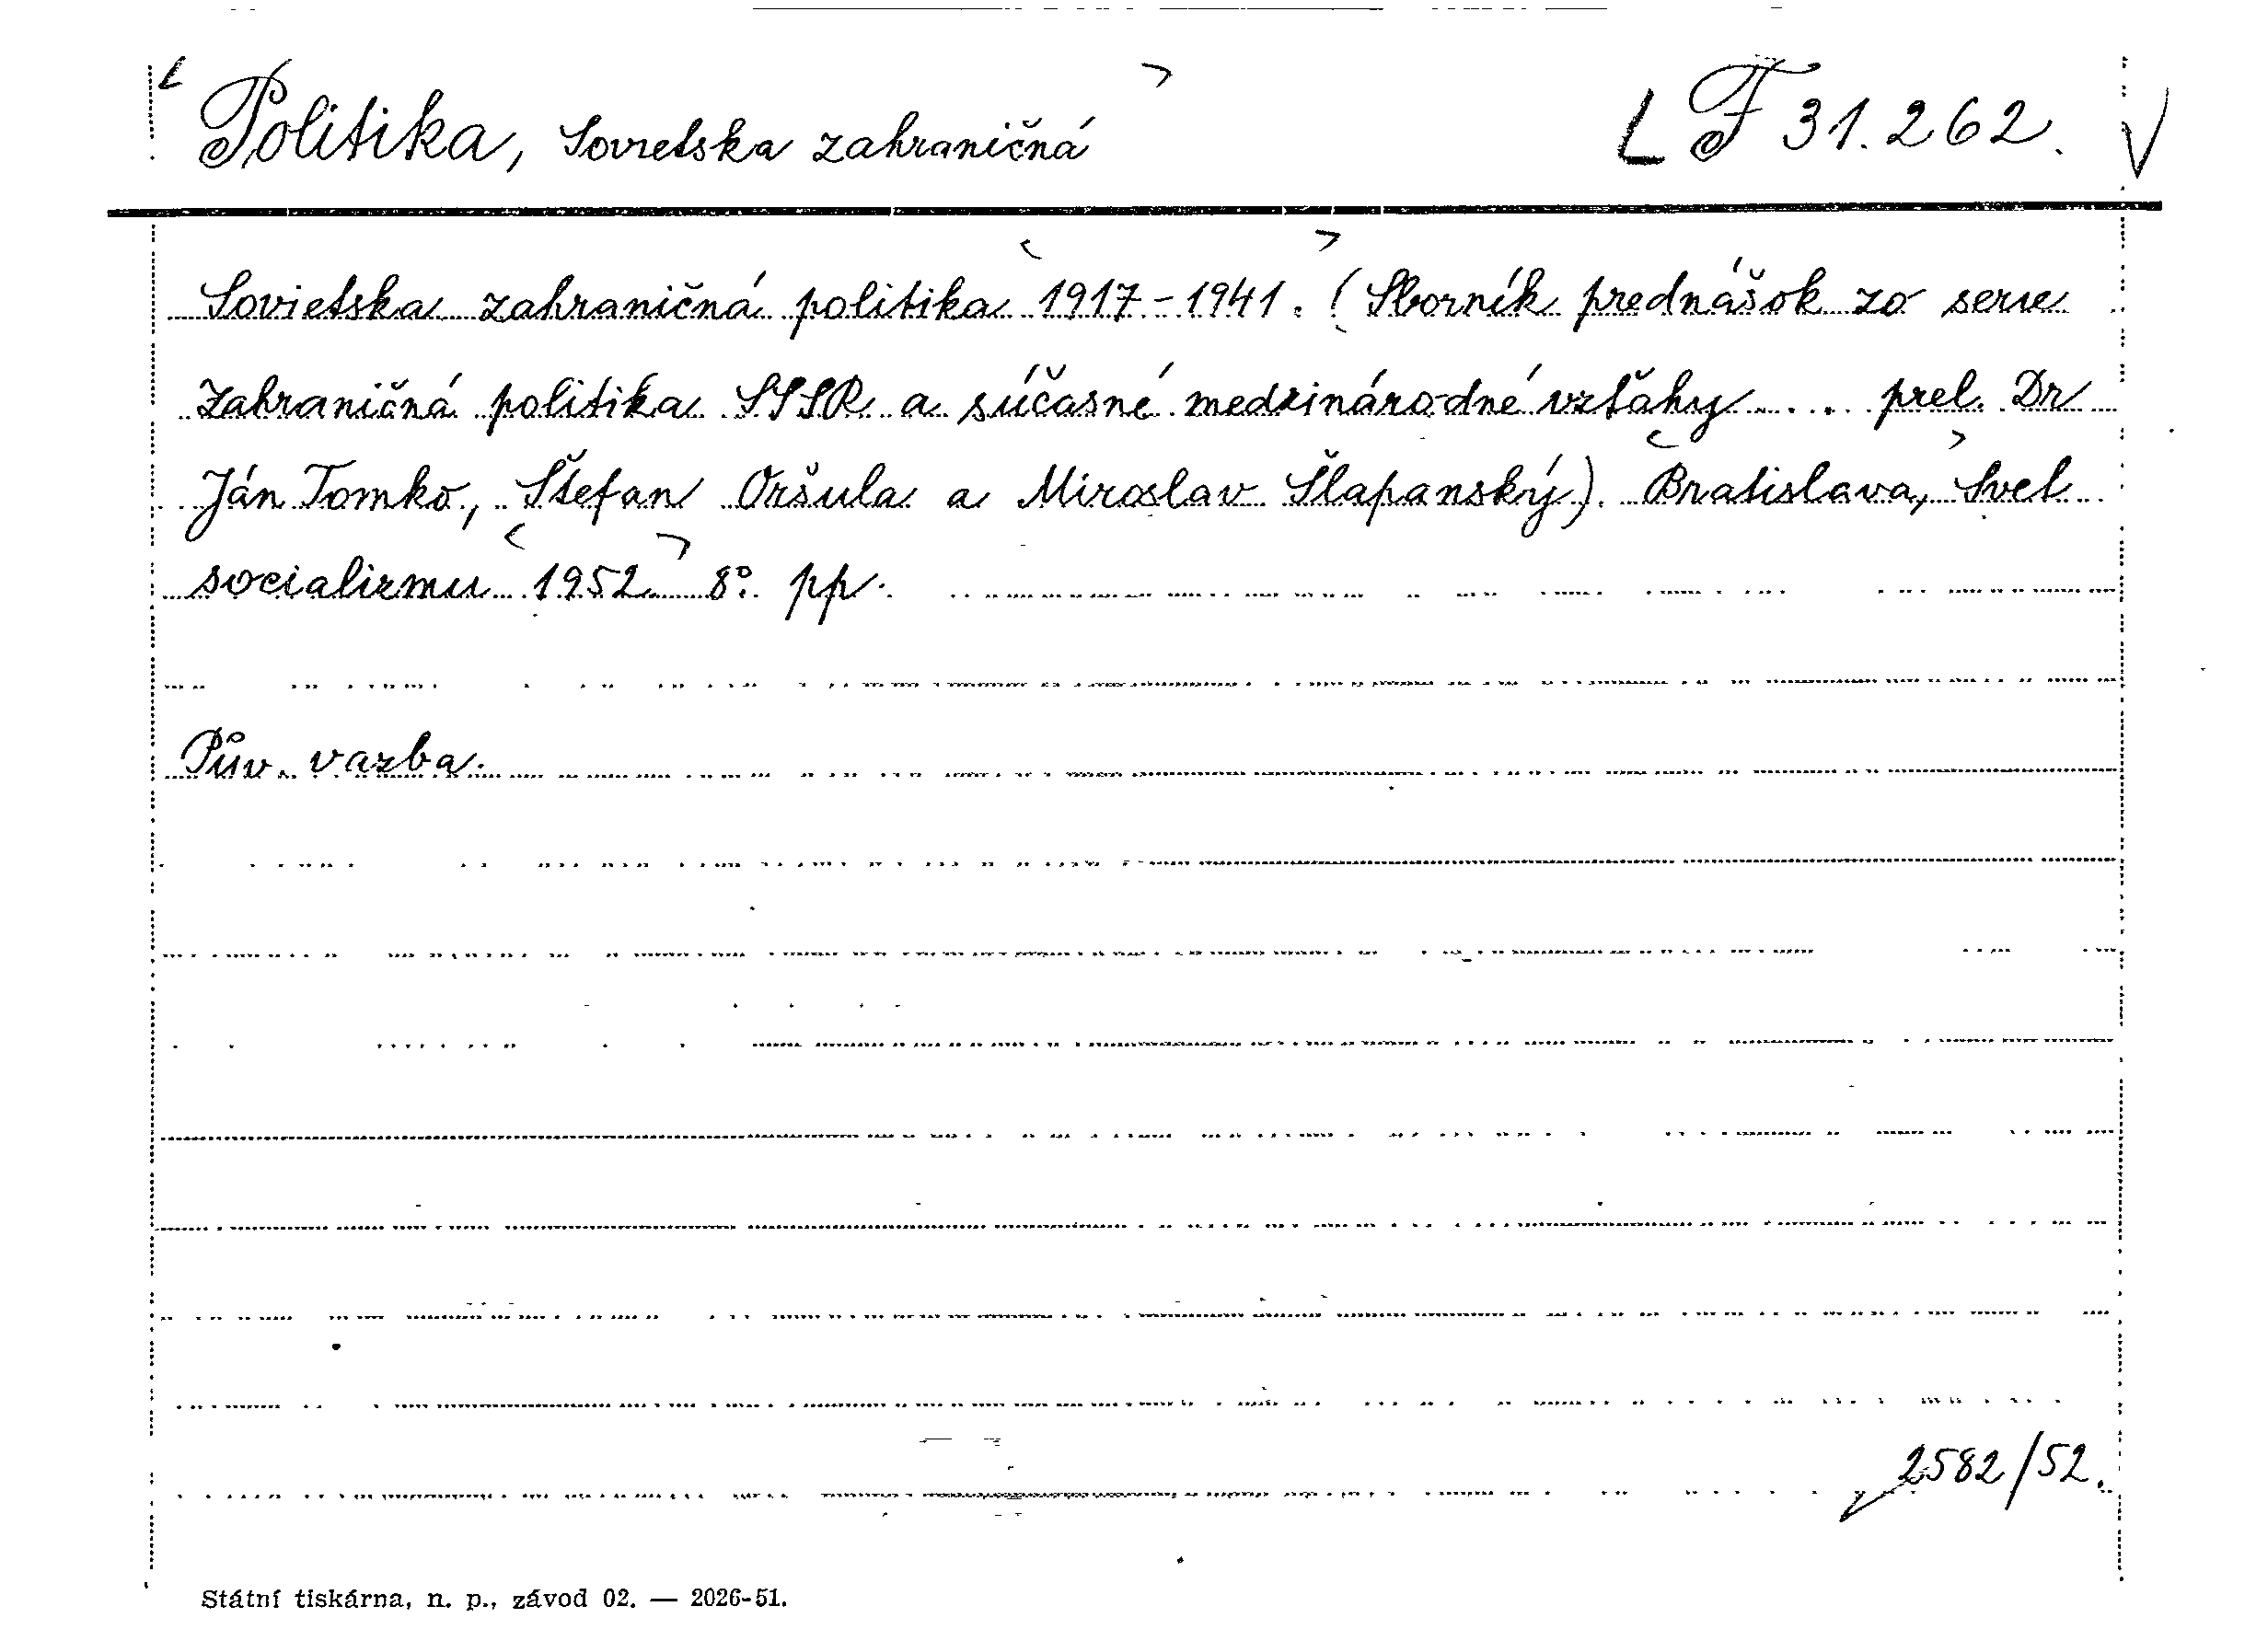 Politika, Sovietska zahraničná F 31.262.
Sovietska zahraničná politika 1917-1941. (Sborník prednášok zo serie
Zahraničná politika SSSR a súčasné medzinárodné vzťahy ... prel. Dr
Ján Tomko, Štefan Oršula a Miroslav Šlapanský). Bratislava, Svet
socializmu 1952 8°. pp.
Pův. vazba.
2582/52.
Státní tiskárna, n. p., závod 02. — 2026-51.